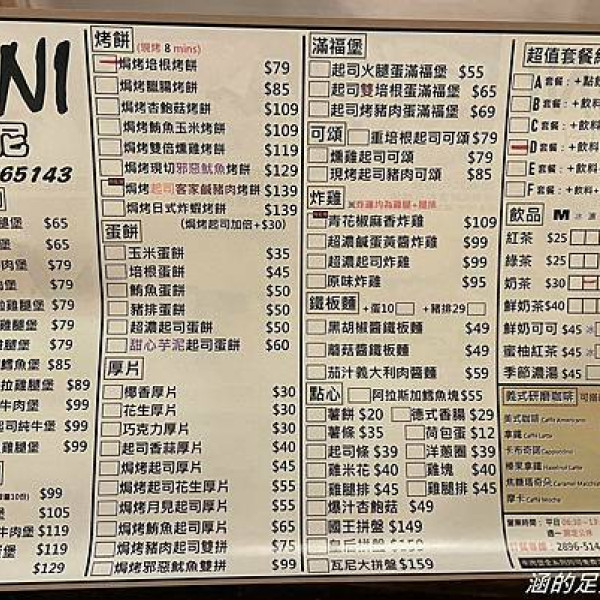 NI
65143
堡 $65
堡 $65
肉堡 $79
堡 $79
雞腿堡 $79
雞堡 $79
堡 $79
鱈魚堡 $89
拉雞腿堡 $99
牛肉堡 $99
起司純牛堡 $99
雞腿堡 $99
$99
堡 $105
牛肉堡 $119
肉堡 $119
$129
烤餅 (現烤 8 mins)
焗烤培根烤餅 $79
焗烤臘腸烤餅 $85
焗烤杏鮑菇烤餅 $109
焗烤鮪魚玉米烤餅 $109
焗烤雙倍燻雞烤餅 $109
焗烤現切邪惡魷魚烤餅 $129
焗烤起司客家鹹豬肉烤餅 $139
焗烤日式炸蝦烤餅 $139
(焗烤起司加倍+$30)
蛋餅
玉米蛋餅 $35
培根蛋餅 $45
鮪魚蛋餅 $50
豬排蛋餅 $50
超濃起司蛋餅 $50
甜心芋泥起司蛋餅 $60
厚片
椰香厚片 $30
花生厚片 $30
巧克力厚片 $30
起司香蒜厚片 $40
焗烤起司厚片 $45
焗烤起司花生厚片 $55
焗烤月見起司厚片 $55
焗烤鮪魚起司厚片 $65
焗烤豬肉起司雙拼 $75
焗烤邪惡魷魚起司 $99
滿福堡
起司火腿蛋滿福堡 $55
起司雙培根蛋滿福堡 $65
起司烤豬肉蛋滿福堡 $69
可頌 雙培根起司可頌 $79
燻雞起司可頌 $79
現烤起司豬肉可頌 $85
炸雞
青花椒麻香炸雞 $109
超濃鹹蛋黃醬炸雞 $99
超濃起司炸雞 $99
原味炸雞 $95
鐵板麵 +蛋10 +豬排29
黑胡椒醬鐵板麵 $49
蘑菇醬鐵板麵 $49
茄汁義大利肉醬麵 $59
點心 阿拉斯加鱈魚塊$55
薯餅 $20 德式香腸 $29
薯條 $35 荷包蛋 $12
起司條 $39 洋蔥圈 $39
雞米花 $40 雞塊 $40
雞腿排 $45 雞腿排 $45
爆汁杏鮑菇 $49
國王拼盤 $149
皇后拼盤 $159
瓦尼大拼盤 $159
超值套餐組
A 套餐：+點
B 套餐：+飲料
C 套餐：+飲料
D 套餐：+飲料
E 套餐：+飲料
F 套餐：+飲料
飲品 M 冰
紅茶 $25
綠茶 $25
奶茶 $30
鮮奶茶 $40
鮮奶可可 $45 冰
蜜柚紅茶 $45 冰
季節濃湯 $45
義式研磨咖啡
美式咖啡 Caffè Americano
拿鐵 Caffè Latte
卡布奇諾 Cappuccino
榛果拿鐵 Hazelnut Latte
焦糖瑪奇朵 Caramel Macchia
摩卡 Caffè Mocha
營業時間：平日 06:30~13
訂餐專線：2896-514
涵的足